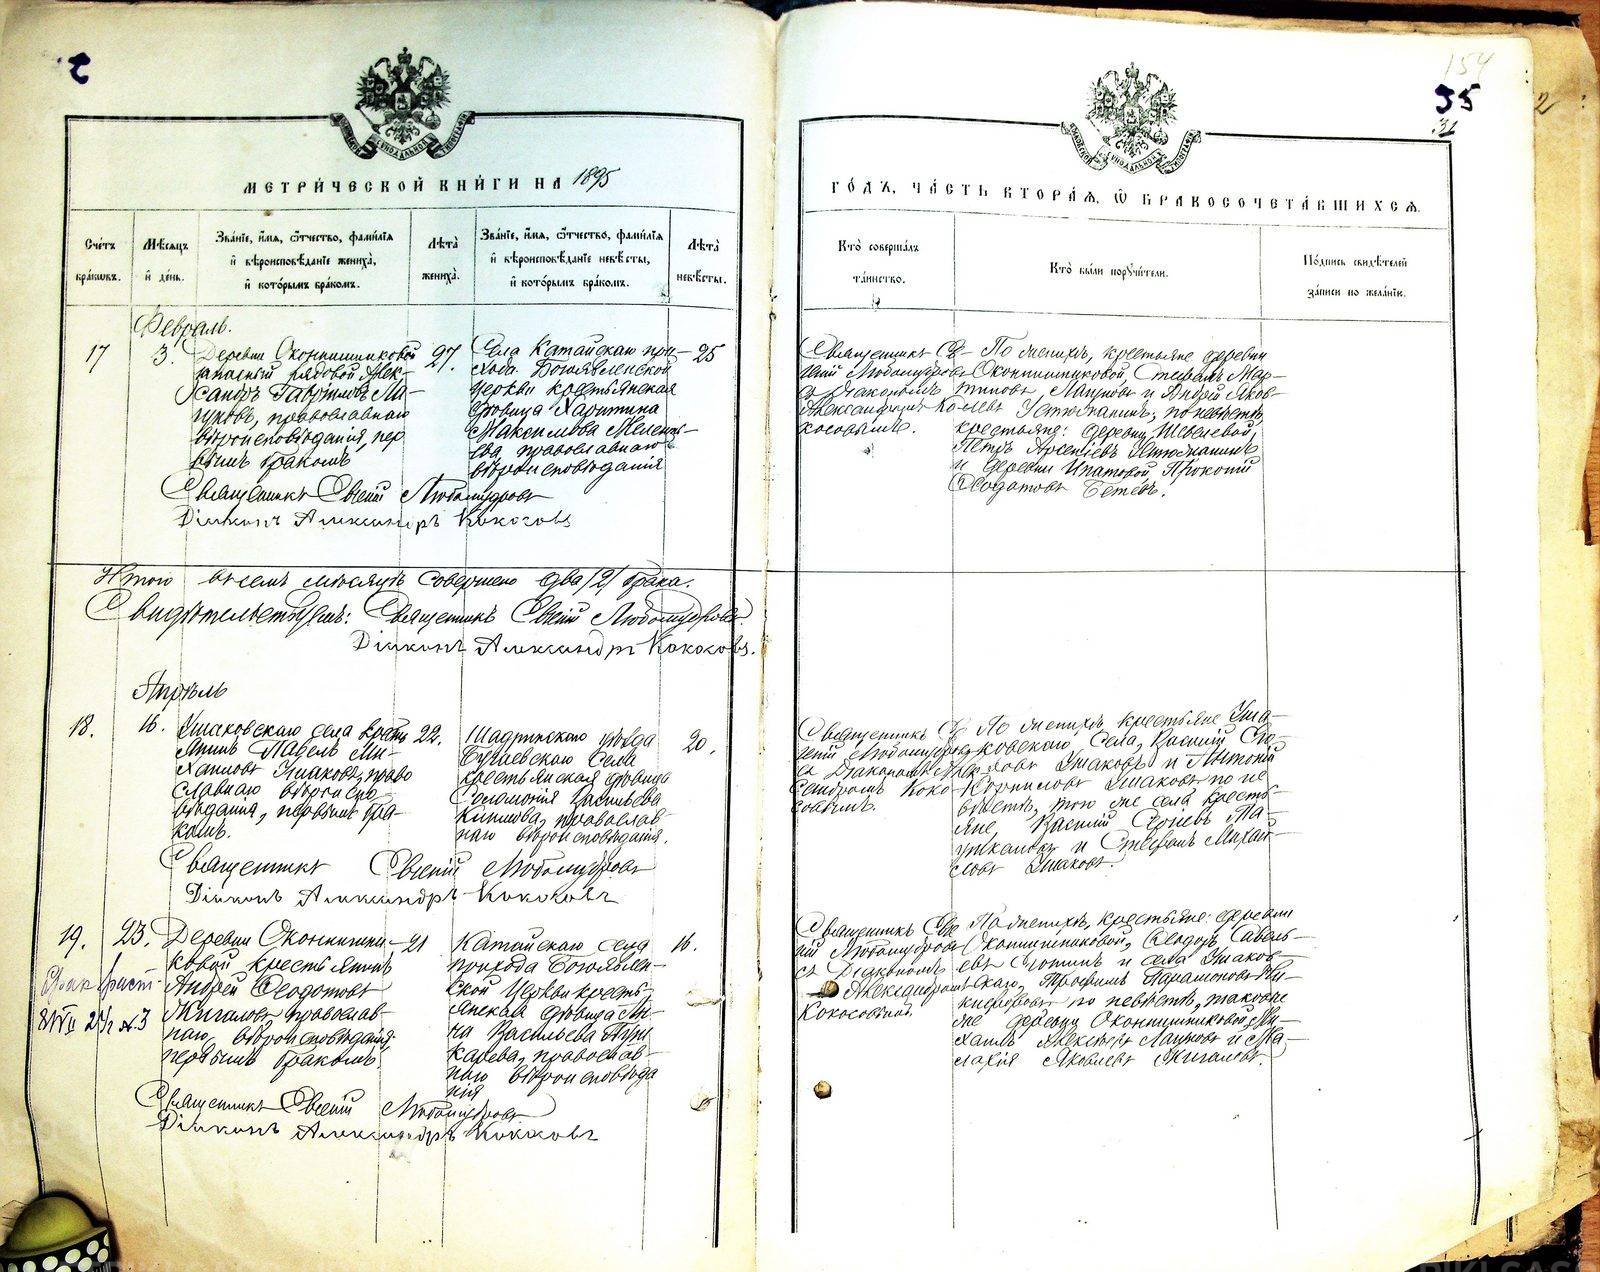 2
154
35
31
2
МОСКОВСКОЙ СѴНОДАЛЬНОЙ ТИПОГРАФІИ
МОСКОВСКОЙ СѴНОДАЛЬНОЙ ТИПОГРАФІИ
МЕТРИ́ЧЕСКОЙ КНИ́ГИ НА 1895
ГО́ДЪ, ЧА́СТЬ ВТОРА́Я, Ѡ БРАКОСОЧЕТА́ВШИХСЯ.
Сче́тъ
бра́ковъ.
Мѣ́сяцъ
и҆ де́нь.
Зва́нїе, и҆́мѧ, ѻ҆́тчество, фами́лїѧ
и҆ вѣроисповѣ́данїе жениха̀,
и҆ кото́рымъ бра́комъ.
Лѣ́та
жениха̀.
Зва́нїе, и҆́мѧ, ѻ҆́тчество, фами́лїѧ
и҆ вѣроисповѣ́данїе невѣ́сты,
и҆ кото́рымъ бра́комъ.
Лѣ́та
невѣ́сты.
Кто̀ соверша́лъ
та́инство.
Кто̀ бы́ли поручи́тели.
По́дпись свидѣ́телей
за́писи по жела́нїю.
Февраль.
17
3.
Деревни Оконишниковой
запасный рядовой Алек-
сандръ Гавріиловъ Ла-
гуновъ, православнаго
вѣроисповѣданія, пер
вымъ бракомъ
27.
Села Катайскаго при-
хода Богоявленской
церкви крестьянская
дѣвица Харитина
Максимова
православнаго
вѣроисповѣданія
25
Священникъ Ев-
геній Любомудровъ
съ Діакономъ
Александромъ Ко-
косовымъ.
По женихѣ, крестьяне деревни
Оконишниковой, Стефанъ Мар-
тиновъ Лагуновъ и Андрей Яков-
левъ Устюжанинъ; по невѣстѣ,
крестьяне: деревни Шевелевой,
Петръ Арсеніевъ Устюжанинъ
и деревни Ипатовой Прокопій
Ѳеодотовъ
Священникъ Евгеній Любомудровъ
Діаконъ Александръ Кокосовъ
Итого въ семъ мѣсяцѣ совершено два /2/ брака.
Свидѣтельствуемъ: Священникъ Евгеній Любомудровъ
Діаконъ Александръ Кокосовъ.
Апрѣль
18.
16.
Ушаковскаго села кресть
янинъ Павелъ Ми-
хаиловъ Ушаковъ, право
славнаго вѣроиспо-
вѣданія, первымъ бра-
комъ.
22.
Шадринскаго уѣзда
Бугаевскаго села
крестьянская дѣвица
Соломонія Васильева
православ-
наго вѣроисповѣданія.
20.
Священникъ Ев
геній Любомудровъ
съ Діакономъ Алек-
сандромъ Коко-
совымъ.
По женихѣ крестьяне Уша-
ковскаго села, Василій
Ушаковъ и Антоній
Корниловъ Ушаковъ по не
вѣстѣ, того же села кресть-
яне, Василій Сергѣевъ
и Стефанъ Михаи-
ловъ Ушаковъ.
Священникъ Евгеній Любомудровъ
Діаконъ Александръ Кокосовъ
19.
23.
Деревни Оконишни-
ковой крестьянинъ
Андрей Ѳеодотовъ
Жигаловъ, православ-
наго вѣроисповѣданія,
первымъ бракомъ.
21
Катайскаго села
прихода Богоявлен-
ской церкви кресть-
янская дѣвица Ан-
на Васильева
православ-
наго вѣроисповѣда
нія
16.
Брак раст.
24 г. № 3
Священникъ Евге
ній Любомудровъ
съ Діакономъ
Александромъ
Кокосовымъ.
По женихѣ, крестьяне: деревни
Оконишниковой, Ѳеодоръ Савель-
евъ и села Ушаков-
скаго, Трофимъ Парамоновъ
по невѣстѣ, таковые
же деревни Оконишниковой, Ми-
хаилъ Алексѣевъ Лагуновъ и Ма-
лахія Яковлевъ Жигаловъ.
Священникъ Евгеній Любомудровъ
Діаконъ Александръ Кокосовъ